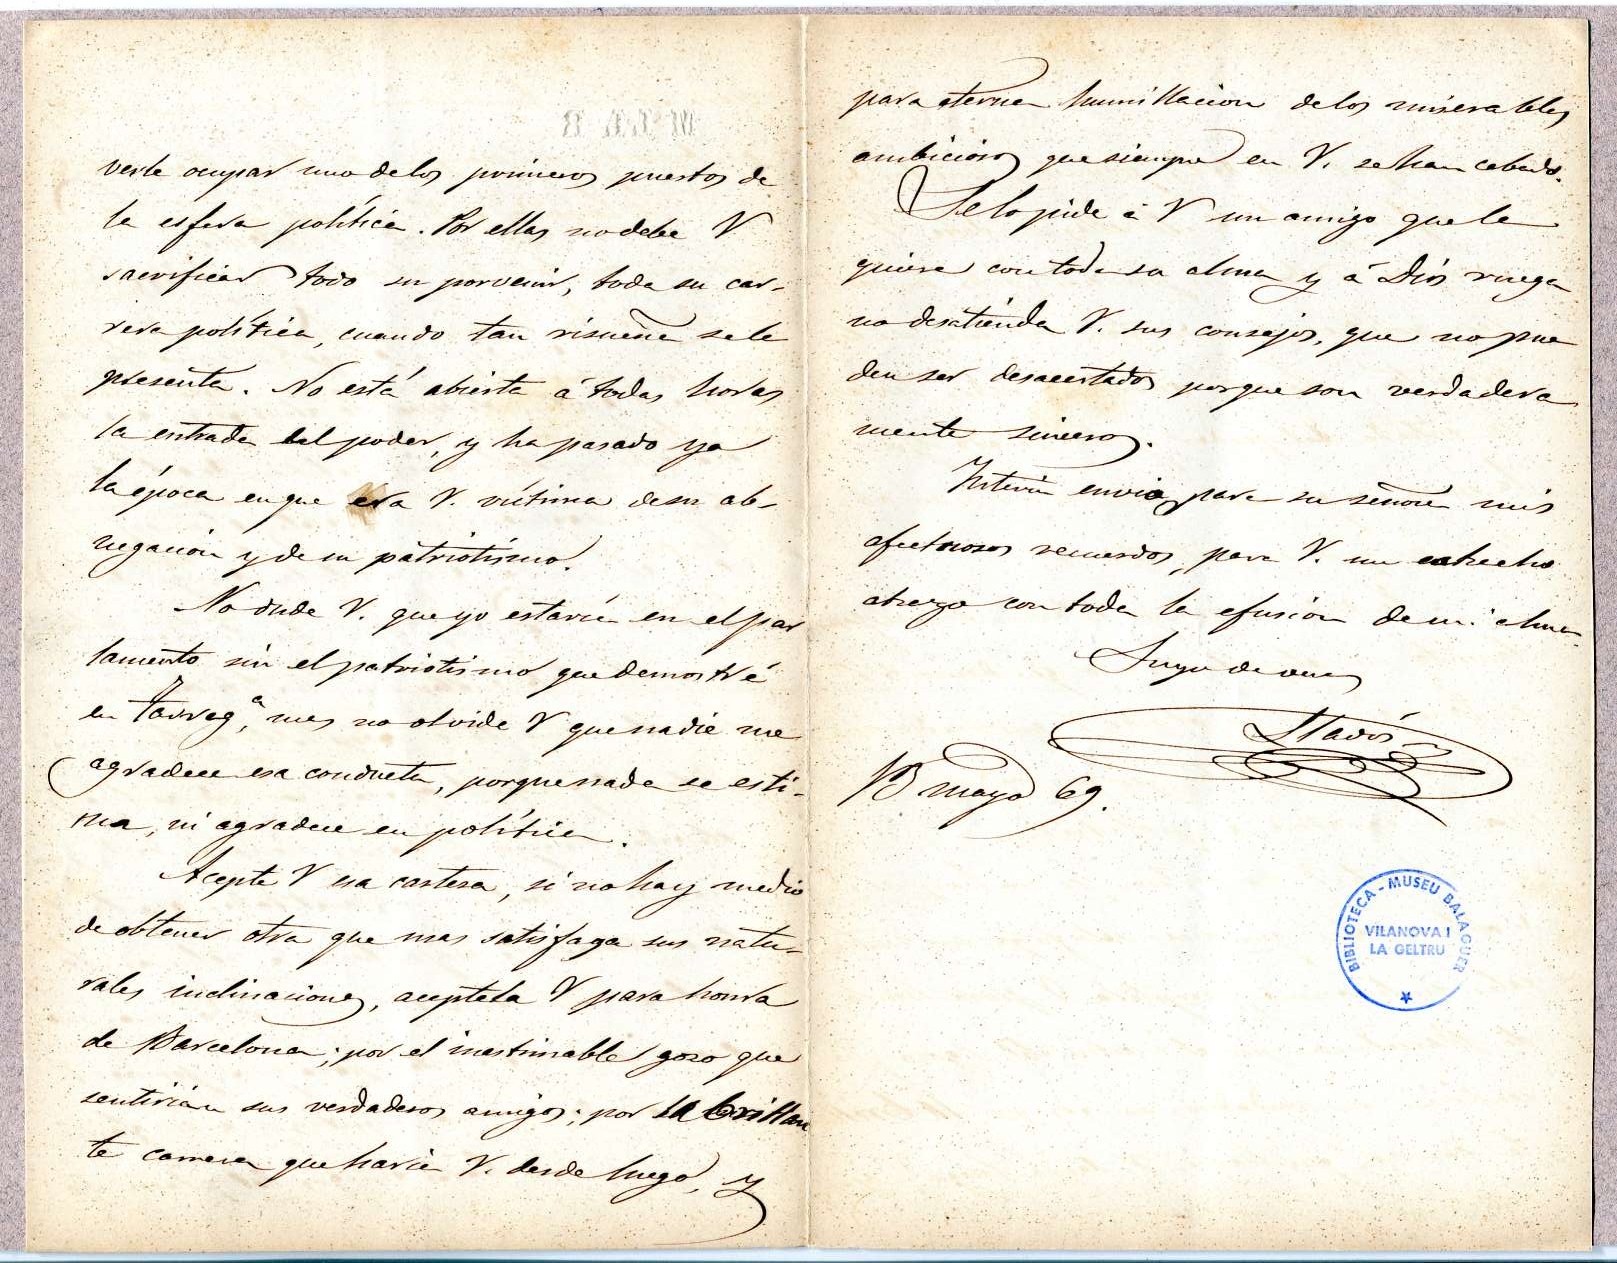 verle ocupar uno de los primeros puestos de
la esfera política. Por ellas no debe V
sacrificar todo su porvenir, toda su car-
rera política, cuando tan risueña se le
presenta. No está abierta á todas horas
la entrada al poder, y ha pasado ya
la época en que era V. víctima de su ab-
negación y de su patriotismo.
No dude V. que yo estaría en el par
lamento sin el patriotismo que demostré
en Tarrag.ª, mas no olvide V que nadie me
agradece esa conducta, porque nada se esti-
ma, ni agradece en política.
Acepte V esa cartera, si no hay medio
de obtener otra que mas satisfaga sus natu-
rales inclinaciones, aceptela V para honra
de Barcelona; por el inestimable gozo que
sentirían sus verdaderos amigos; por la brillan
te carrera que haria V. desde luego, y
para eterna humillacion de los miserables
ambiciosos que siempre en V. se han cebado.
Se lo pide á V un amigo que le
quiere con toda su alma y á Diós ruega
no desatienda V. sus consejos, que no pue
den ser desacertados porque son verdadera
mente sinceros.
Interin envia para su señora mis
afectuosos recuerdos, para V. un estrecho
abrazo con toda la efusión de mi alma
Suyo de veras
Lladós
B mayo 69.
BIBLIOTECA - MUSEU BALAGUER
VILANOVA I
LA GELTRU